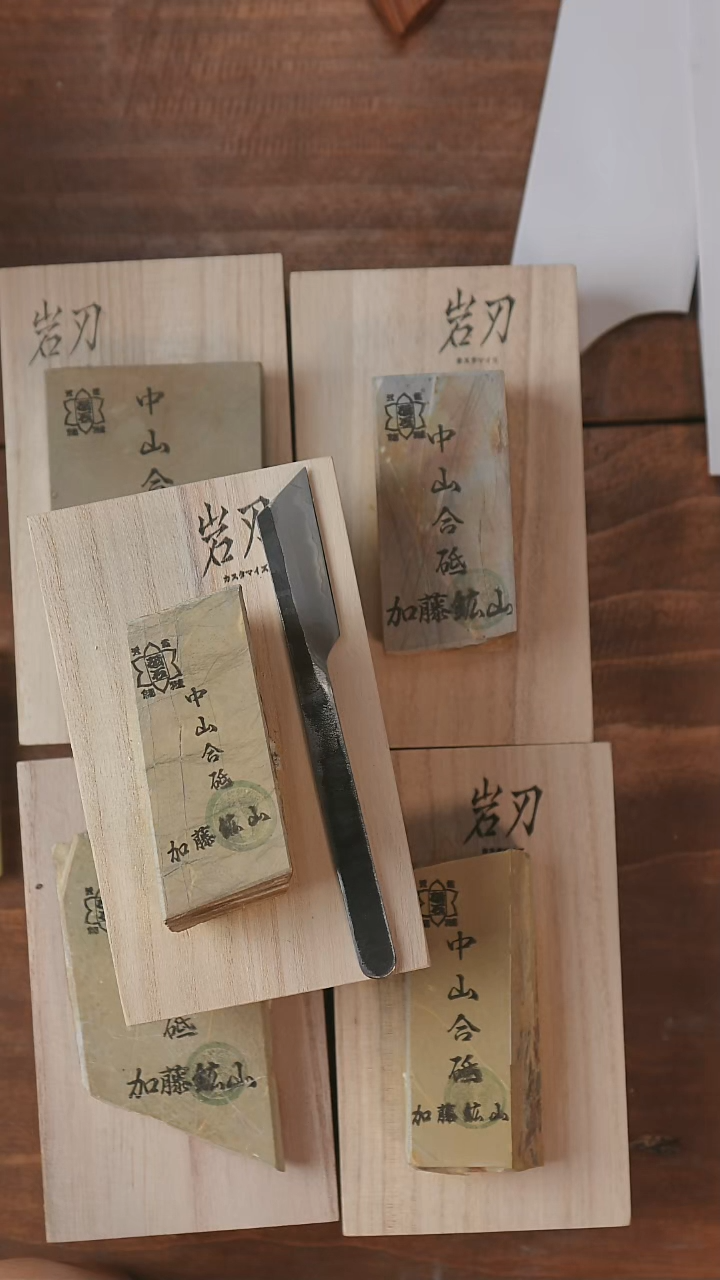 岩刃
中
山
合
岩刃
カスタマイズ
中
山
合
砥
加藤鉱山
岩刃
カスタマイズ
中
山
合
砥
加藤鉱山
砥
加藤鉱山
岩刃
中
山
合
砥
加藤鉱山